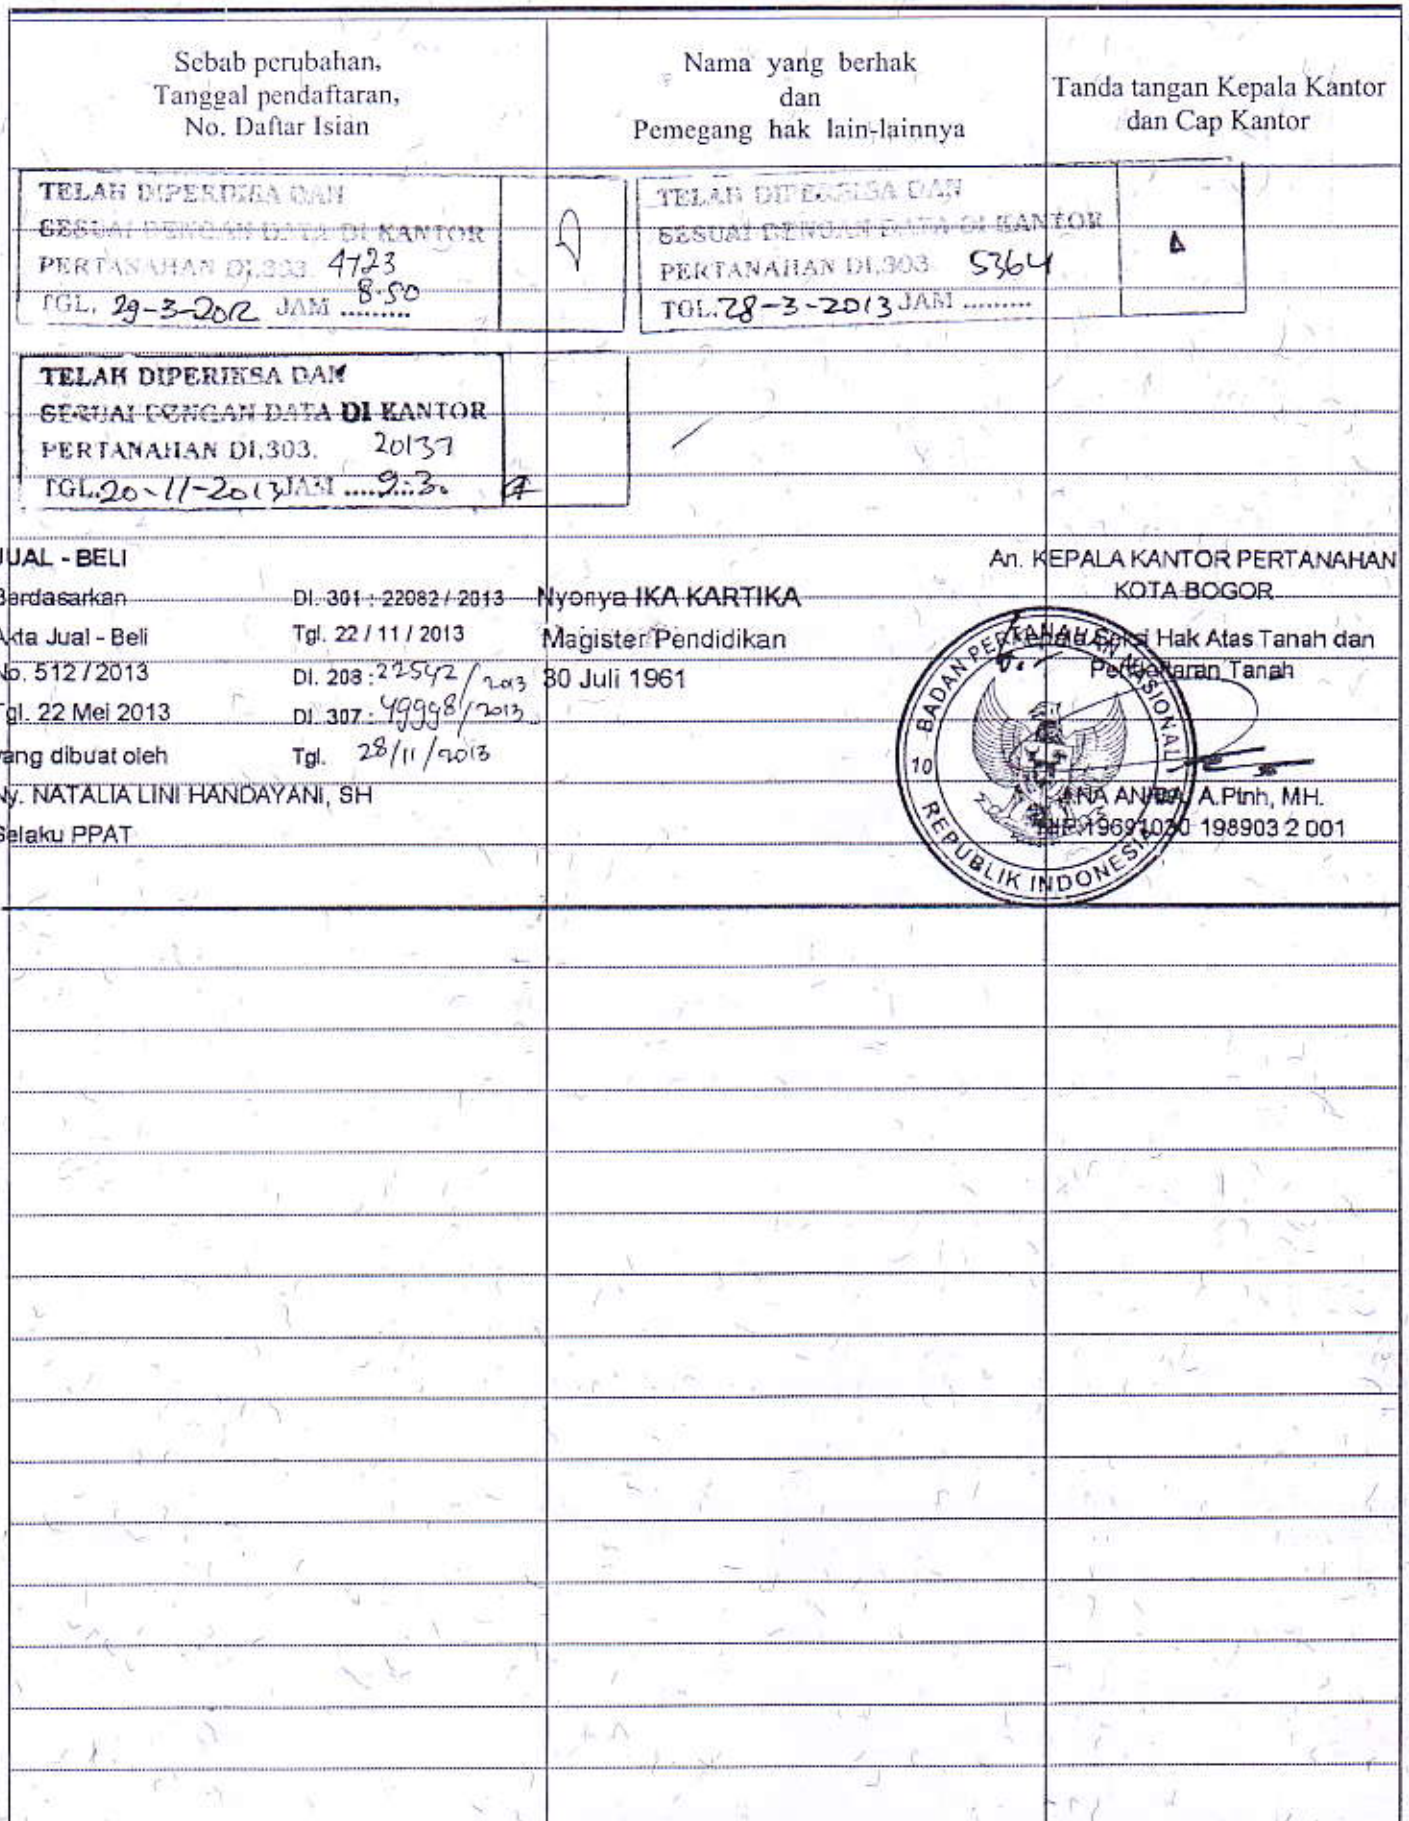 Sebab perubahan,
Tanggal pendaftaran,
No. Daftar Isian
Nama yang berhak
dan
Pemegang hak lain-lainnya
Tanda tangan Kepala Kantor
dan Cap Kantor
TELAH DIPERIKSA DAN
SESUAI DENGAN DATA DI KANTOR
PERTANAHAN DI.303. 4723
TGL. 29-3-2012 JAM 8.50
TELAH DIPERIKSA DAN
SESUAI DENGAN DATA DI KANTOR
PERTANAHAN DI.303. 5364
TGL. 28-3-2013 JAM .........
TELAH DIPERIKSA DAN
SESUAI DENGAN DATA DI KANTOR
PERTANAHAN DI.303. 20137
TGL. 20-11-2013 JAM ...9:30
JUAL - BELI
Berdasarkan DI. 301 : 22082 / 2013
Akta Jual - Beli Tgl. 22 / 11 / 2013
No. 512 / 2013 DI. 208 : 22542 / 2013
Tgl. 22 Mei 2013 DI. 307 : 49998/2013
yang dibuat oleh Tgl. 28/11/2013
Ny. NATALIA LINI HANDAYANI, SH
Selaku PPAT
Nyonya IKA KARTIKA
Magister Pendidikan
30 Juli 1961
An. KEPALA KANTOR PERTANAHAN
KOTA BOGOR
Kepala Seksi Hak Atas Tanah dan
Pendaftaran Tanah
BADAN PERTANAHAN NASIONAL
10
REPUBLIK INDONESIA
A.Ptnh, MH.
NIP.19691030 198903 2 001